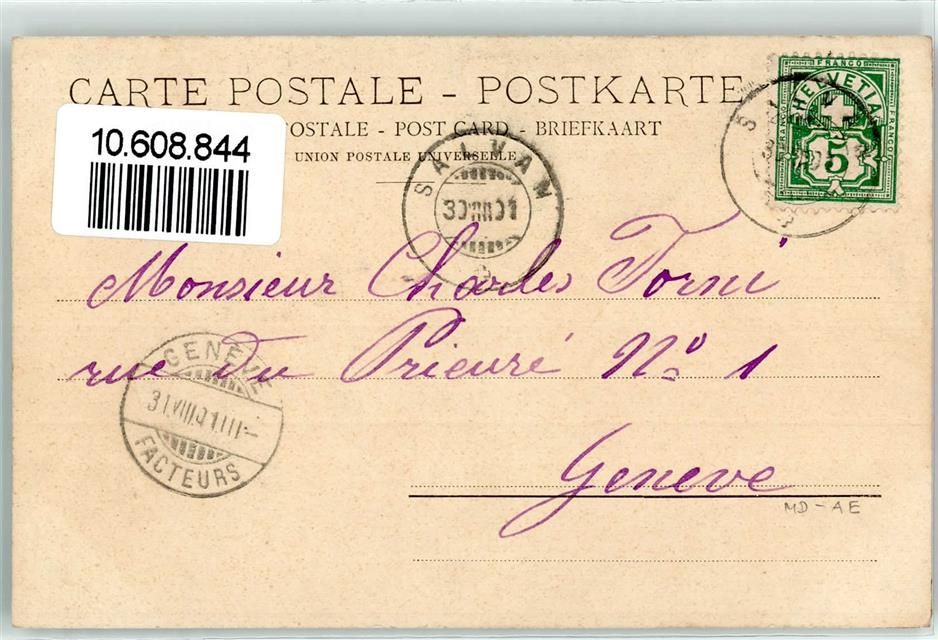 CARTE POSTALE - POSTKARTE
POSTALE - POST CARD - BRIEFKAART
UNION POSTALE UNIVERSELLE
10.608.844
FRANCO
HELVETIA
FRANCO
FRANCO
5
SALVAN
30 VIII 01
Monsieur Charles Torni
rue du Prieuré No 1
Geneve
GENÈVE
31.VIII.01.III-
FACTEURS
MD-AE